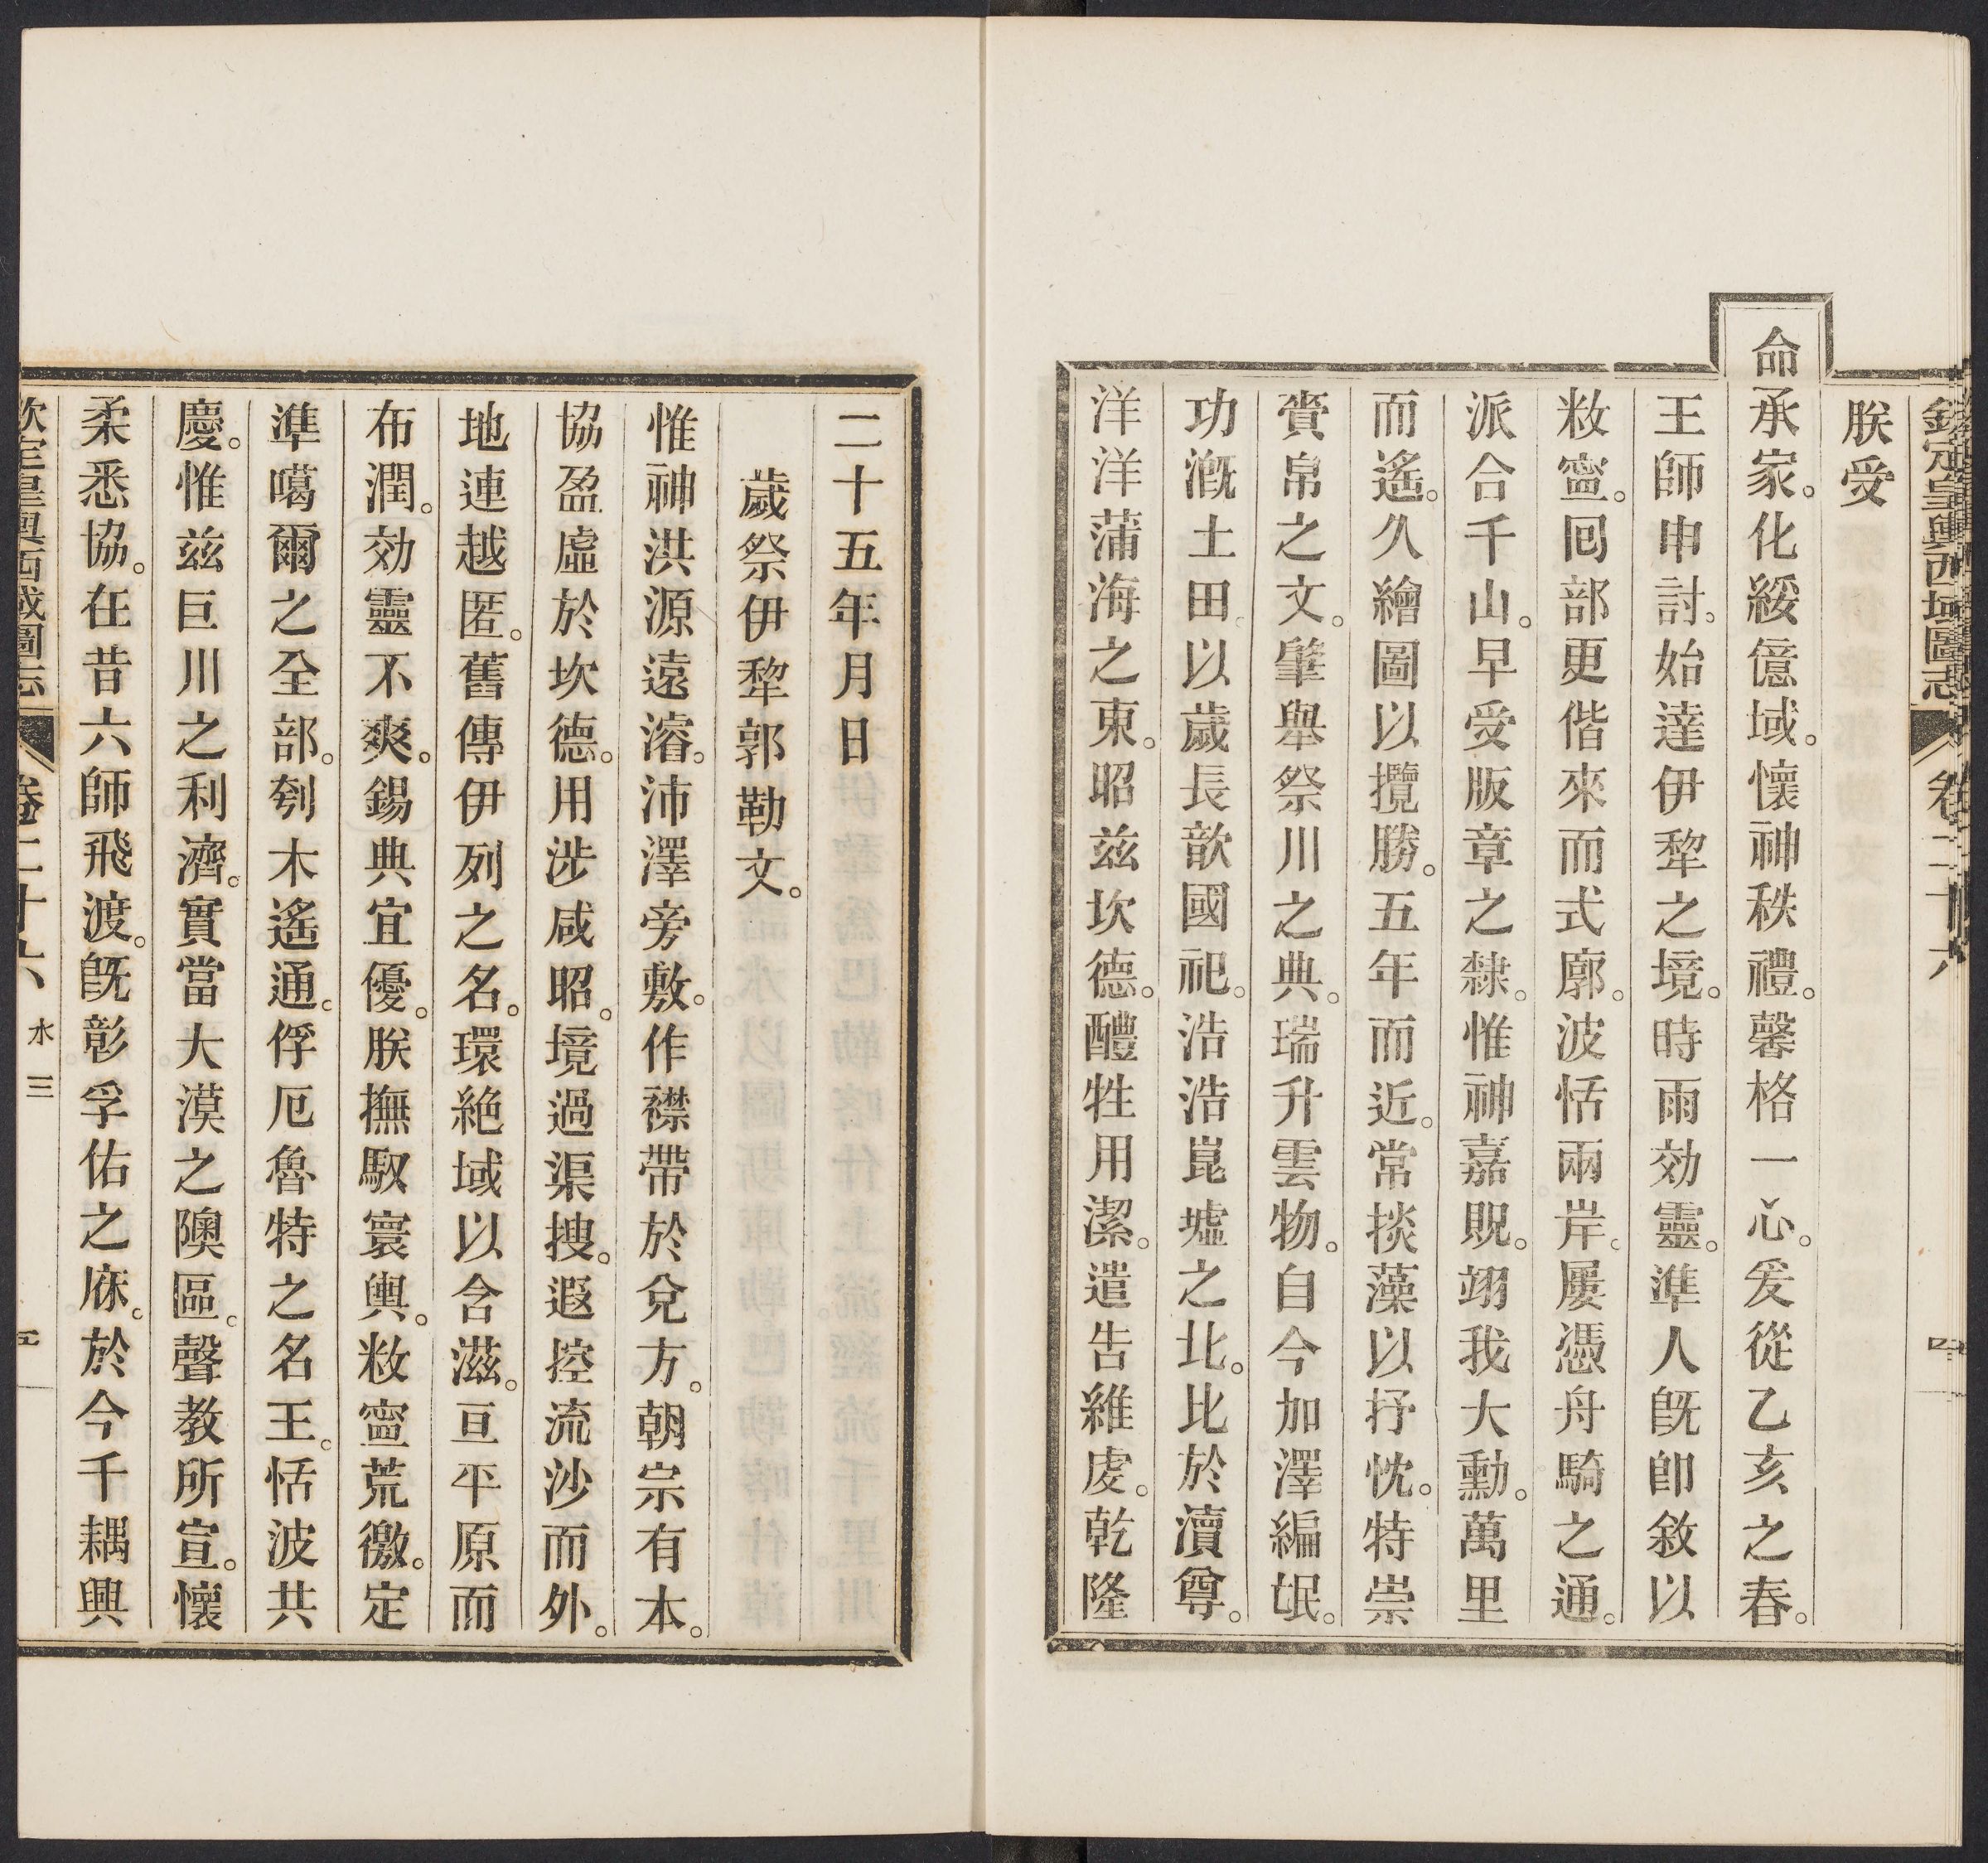 欽定皇輿西域圖志 卷二十六 四
朕受
命承家。化綏億域。懷神秩禮。馨格一心。爰從乙亥之春。
王師申討。始達伊犂之境。時雨効靈。準人旣卽敘以
敉寍。囘部更偕來而式廓。波恬兩岸。屢憑舟騎之通。
派合千山。早受版章之隸。惟神嘉貺。翊我大勳。萬里
而遙。久繪圖以攬勝。五年而近。常掞藻以抒忱。特崇
賚帛之文。肇舉祭川之典。瑞升雲物。自今加澤編氓。
功漑土田。以歲長歆國祀。浩浩崑墟之北。比於瀆尊。
洋洋蒲海之東。昭茲坎德。醴牲用潔。遣告維虔。乾隆
二十五年月日
歲祭伊犂郭勒文。
惟神洪源遠濬。沛澤旁敷。作襟帶於兌方。朝宗有本。
協盈虛於坎德。用涉咸昭。境過渠搜。遐控流沙而外。
地連越匿。舊傳伊列之名。環絶域以含滋。亘平原而
布潤。効靈不爽。錫典宜優。朕撫馭寰輿。敉寍荒徼。定
準噶爾之全部。刳木遙通。俘厄魯特之名王。恬波共
慶。惟茲巨川之利濟。實當大漠之隩區。聲教所宣。懷
柔悉協。在昔六師飛渡。旣彰孚佑之庥。於今千耦興
欽定皇輿西域圖志 卷二十六 水三 五